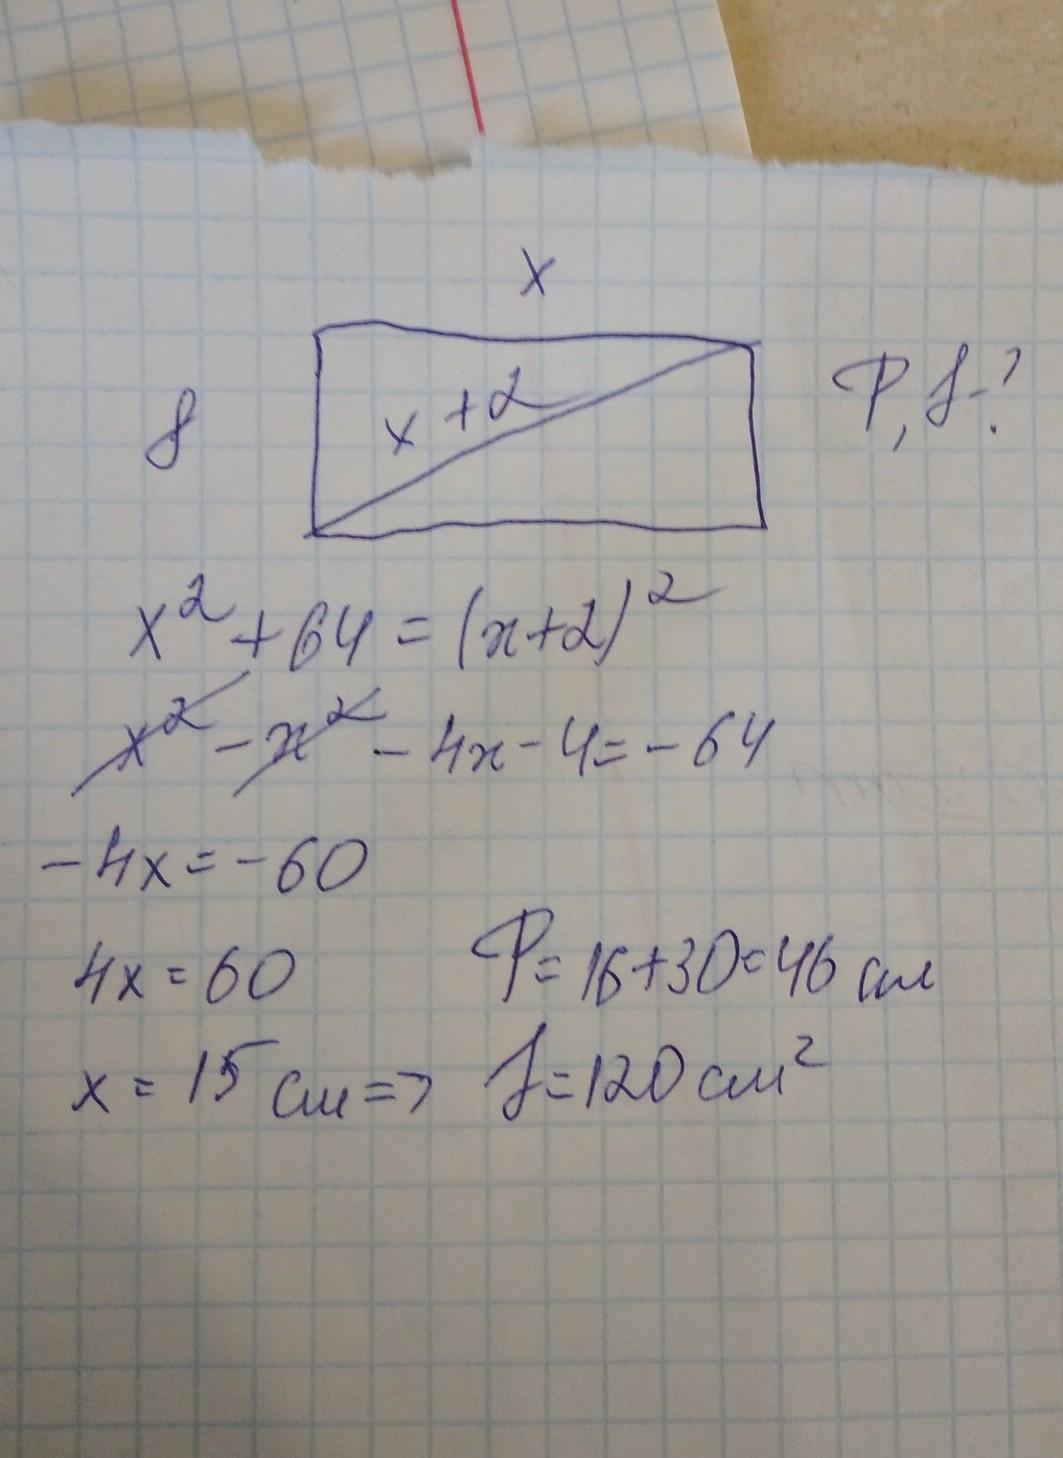 x
8
x+2
P, S-?
x² + 64 = (x+2)²
x² - x² - 4x - 4 = -64
-4x = -60
4x = 60
P = 16+30 = 46 см
x = 15 см =>
S = 120 см²